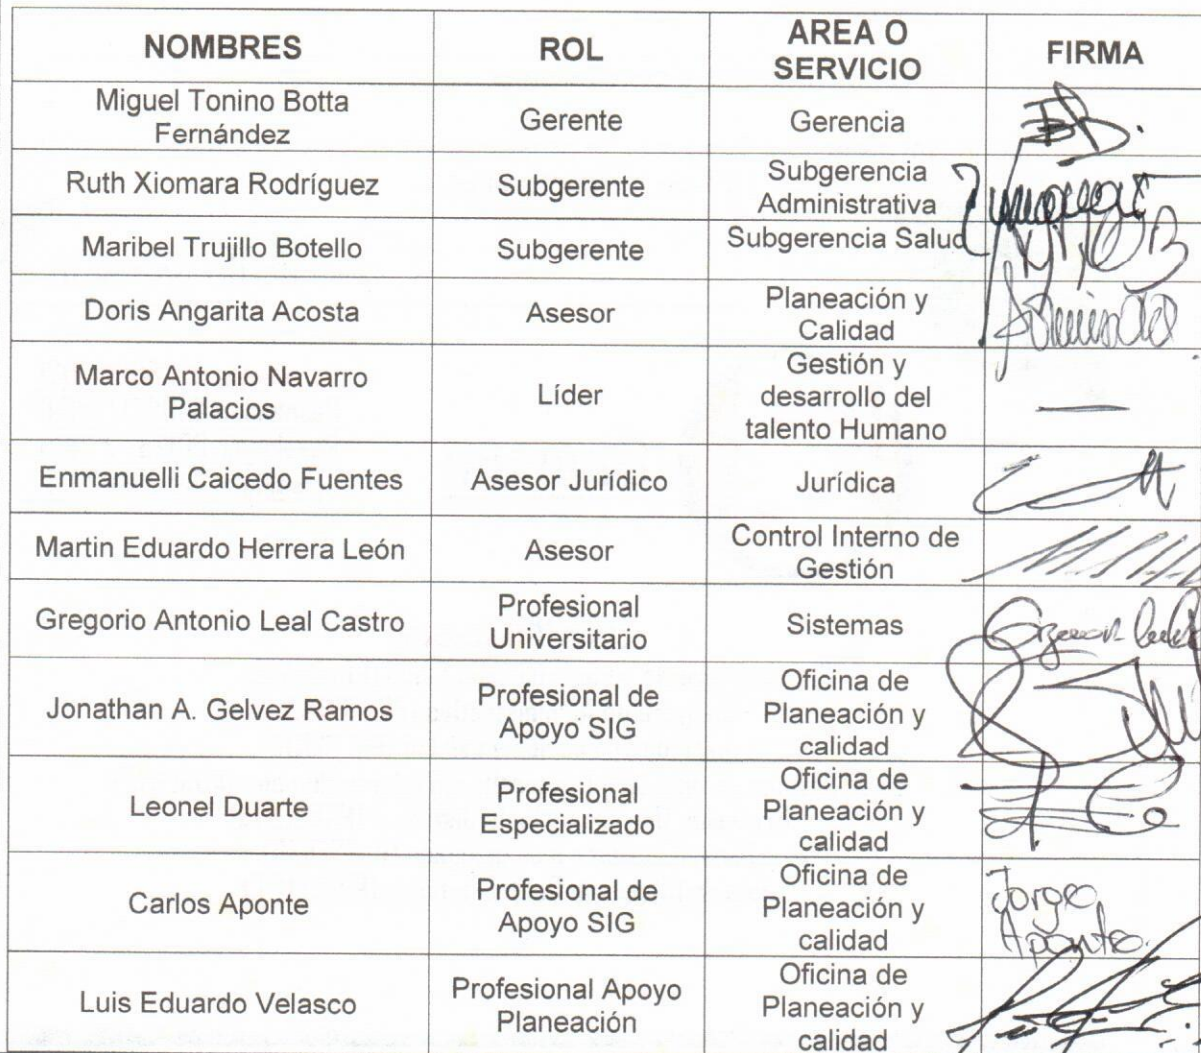 NOMBRES ROL AREA O SERVICIO FIRMA
Miguel Tonino Botta Fernández Gerente Gerencia
Ruth Xiomara Rodríguez Subgerente Subgerencia Administrativa
Maribel Trujillo Botello Subgerente Subgerencia Salud
Doris Angarita Acosta Asesor Planeación y Calidad
Marco Antonio Navarro Palacios Líder Gestión y desarrollo del talento Humano
Enmanuelli Caicedo Fuentes Asesor Jurídico Jurídica
Martin Eduardo Herrera León Asesor Control Interno de Gestión
Gregorio Antonio Leal Castro Profesional Universitario Sistemas
Jonathan A. Gelvez Ramos Profesional de Apoyo SIG Oficina de Planeación y calidad
Leonel Duarte Profesional Especializado Oficina de Planeación y calidad
Carlos Aponte Profesional de Apoyo SIG Oficina de Planeación y calidad Jorge Aponte
Luis Eduardo Velasco Profesional Apoyo Planeación Oficina de Planeación y calidad